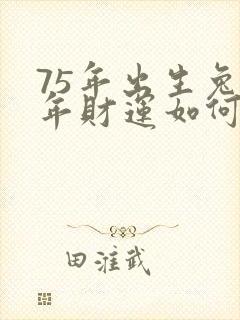 75年出生兔
年財運如何
田淮武